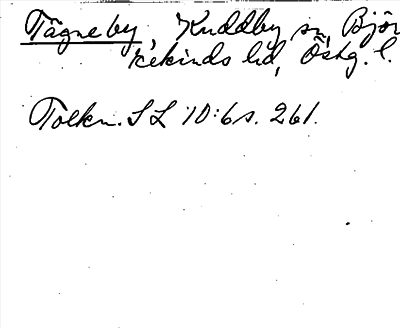 Tägneby, Kuddby sn, Björ
kekinds hd, Östg. l.
Tolkn. SL 10:6 s. 261.